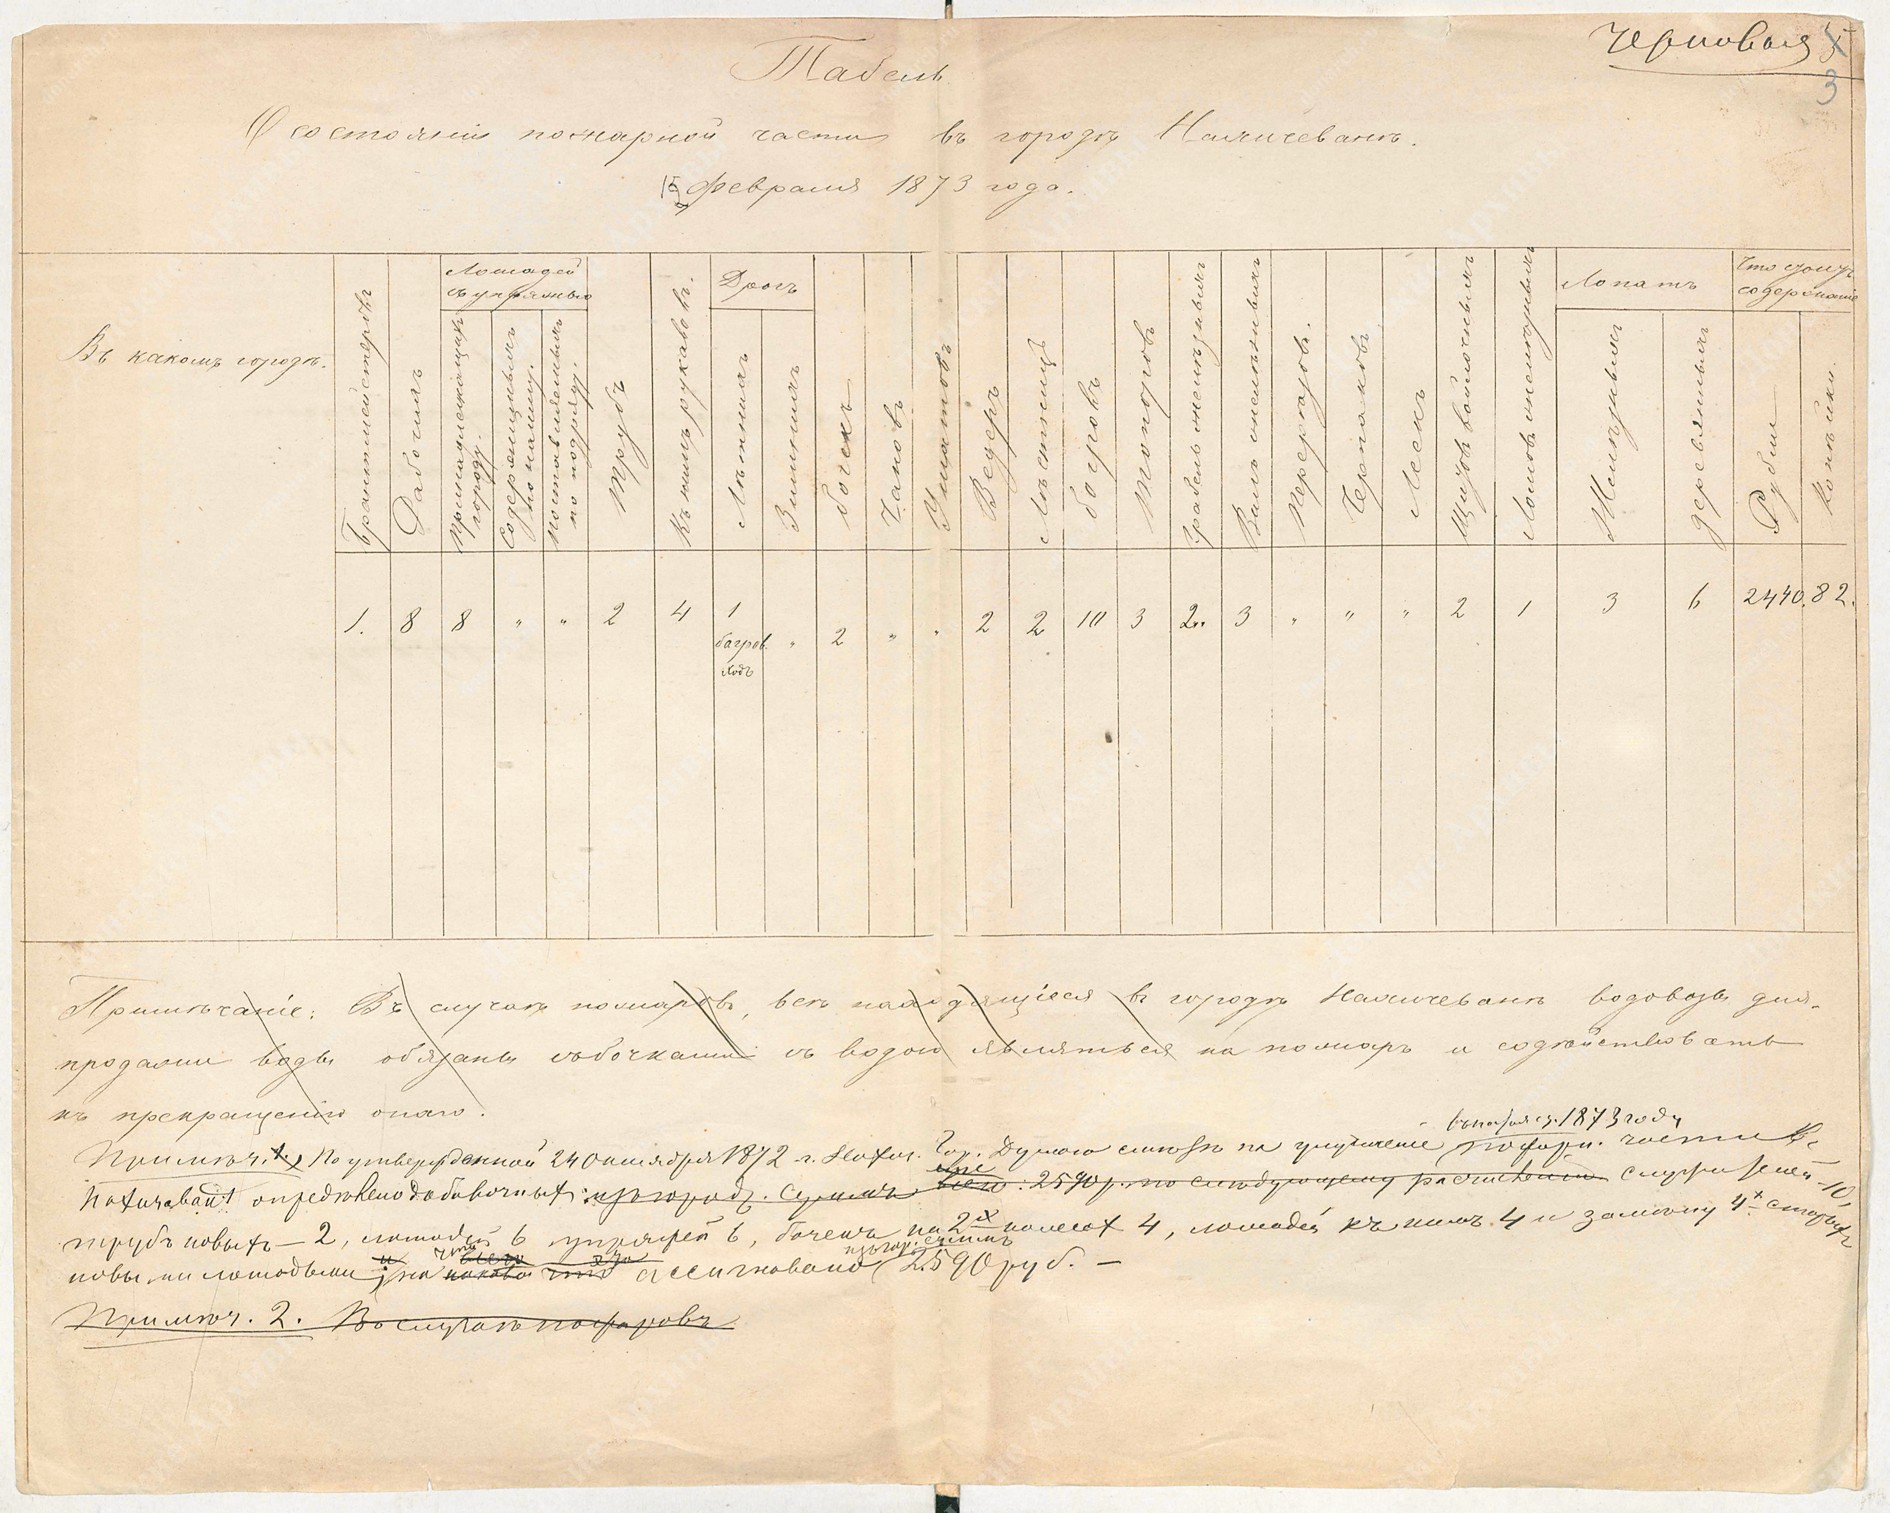 Черновыя
3
Табель
О состояніи пожарной части въ городѣ Нахичевани.
15 февраля 1873 года.
Въ какомъ городѣ.
Брантмейстеровъ
Рабочихъ
Лошадей съ упряжью
принадлежащихъ городу.
Содержищимъ по найму.
поставляемыхъ по подряду.
Трубъ
Къ нимъ рукавовъ.
Дрогъ
Лѣтнихъ
Зимнихъ
бочекъ
Чановъ
Ушатовъ
Ведеръ
Лѣстницъ
багровъ
Топоровъ
Грабель желѣзныхъ
Вилъ желѣзныхъ
Черпаковъ
Щитовъ войлочныхъ
Ломовъ желѣзныхъ
Лопатъ
Желѣзныхъ
деревянныхъ
Что стоитъ содержаніе
Рубли
Копѣйки.
1. 8 8 " " 2 4 1 " 2 " " 2 2 10 3 2 " 3 " " " 2 1 3 6 2440. 82.
багров.
ходъ
Примѣчаніе: Въ случаѣ пожаровъ, всѣ находящіеся въ городѣ Нахичевани водовозы для
продажи воды обязаны съ бочками съ водою являться на пожаръ и содѣйствовать
къ прекращенію онаго.
1873 году
Примѣч. По утвержденной 24 октября 1872 г. Нахич. Гор. Думою смѣтѣ на улучшеніе пожарн. части въ
Нахичевани опредѣлено добавочныхъ: изъ городск. суммъ всего 2590 р. по слѣдующему расчисленію служителей 10,
трубъ новыхъ – 2, лошадей 6 упряжей 6, бочекъ на 2х колесах 4, лошадей къ нимъ 4 и замѣну 4х старых
изъ гор. суммъ
новыми лошадьми; на что ассигновано 2590 руб. —
Примѣч. 2. Въ случаѣ пожаровъ